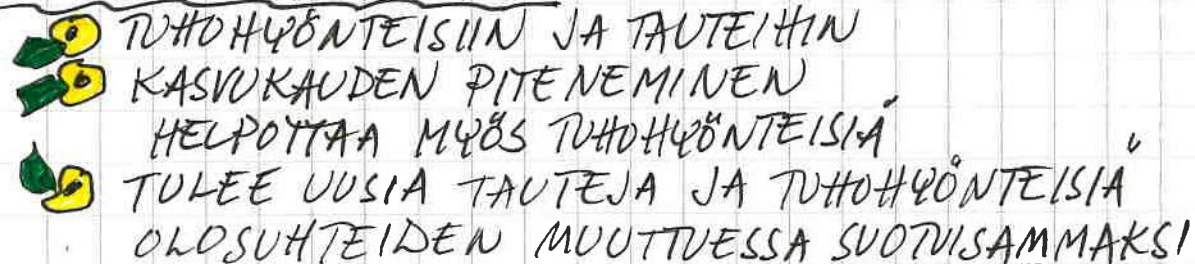 TUHOHYÖNTEISIIN JA TAUTEIHIN
KASVUKAUDEN PITENEMINEN
HELPOTTAA MYÖS TUHOHYÖNTEISIÄ
TULEE UUSIA TAUTEJA JA TUHOHYÖNTEISIÄ
OLOSUHTEIDEN MUUTTUESSA SUOTUISAMMAKSI